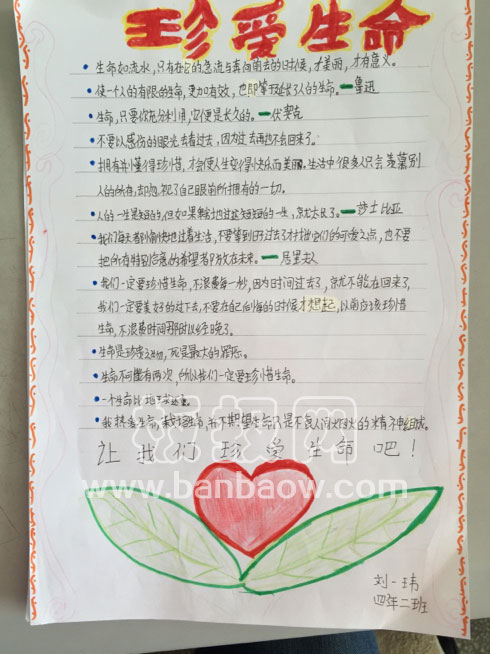 珍爱生命
生命如流水,只有在它的急流与奔向前去的时候,才美丽,才有意义。
使一个人的有限的生命,更加有效,也即等于延长了人的生命。—鲁迅
生命,只要你充分利用,它便是长久的。—伏契克
不要以感伤的眼光去看过去,因为过去再也不会回来了。
拥有并懂得珍惜,才会使人生变得快乐而美丽。生活中很多人只会羡慕别
人的所有,却忽视了自己眼前所拥有的一切。
人的一生是短的,但如果卑劣地过这短短的一生,就太长了。—莎士比亚
我们每天都愉快地过着生活,不要等到日子过去了才找出它们的可爱之点,也不要
把所有特别合意的希望都放在未来。—居里夫人
我们一定要珍惜生命,不浪费每一秒,因为时间过去了,就不能在回来了,
我们一定要美好的过下去,不要在自己后悔的时候才想起,以前应该珍惜
生命,不浪费时间那时以经晚了。
生命是珍贵之物,死是最大的罪恶。
生命不可能有两次,所以我们一定要珍惜生命。
一个生命
我热爱生命,
让我们珍爱生命吧!
板报网
www.banbaow.com
刘一玮
四年二班